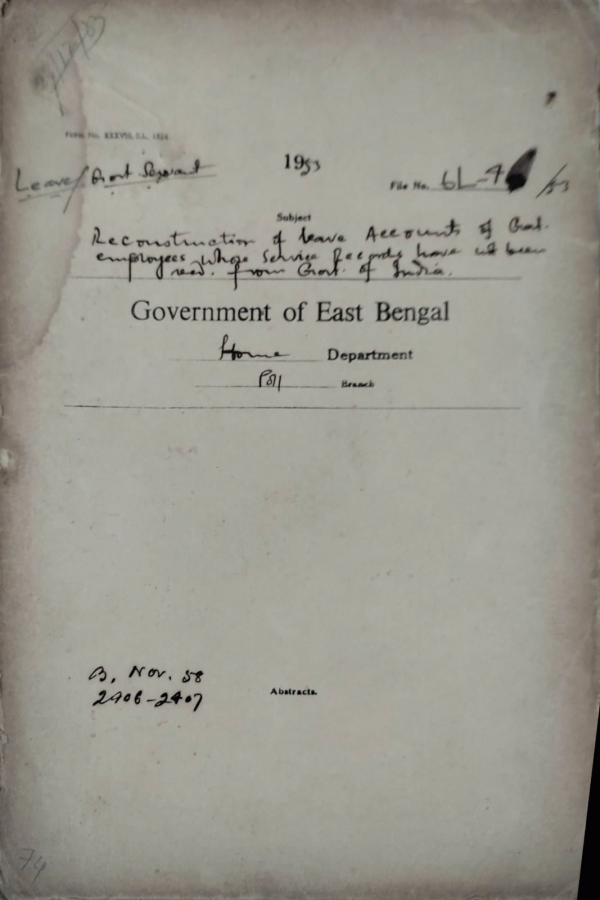 Form No. XXXVIII, S.L. 1924
1953
Leave/Govt Servant
File No. 6L-4 /53
Subject
Reconstruction of leave Accounts of Govt.
employees whose Service Records have not been
recd. from Govt. of India.
Government of East Bengal
Home Department
Poll Branch
B, Nov. 58
2406-2407
Abstracts.
74